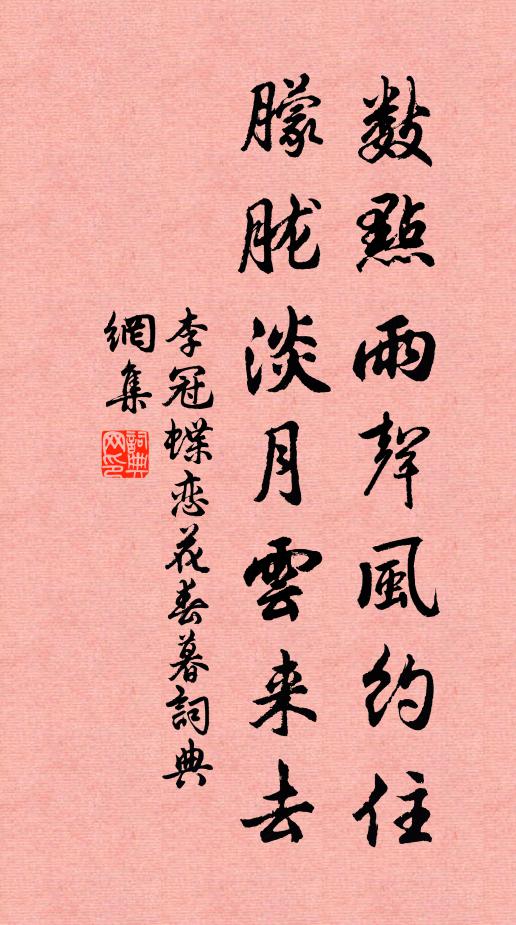 數點雨聲風約住
朦朧淡月雲来去
李冠蝶恋花春暮詞典
網集
詞典
网印